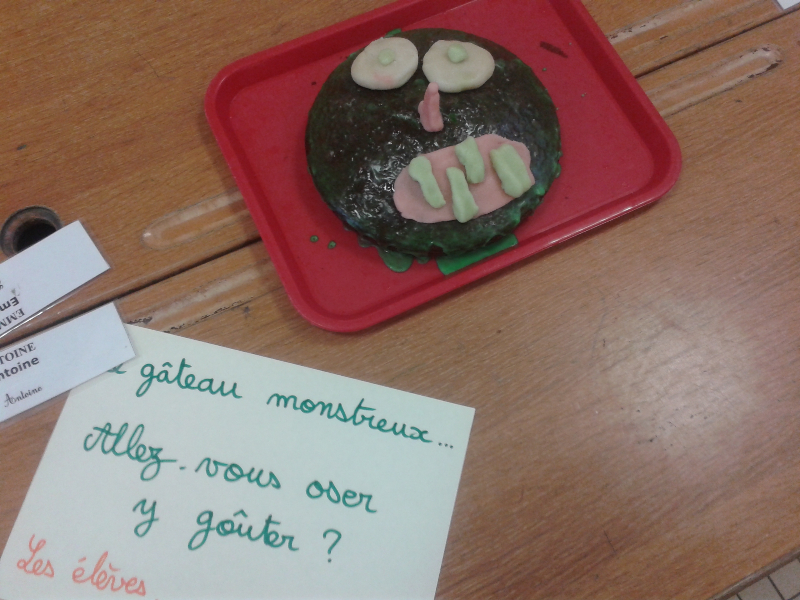 gâteau monstrueux...
Allez-vous oser
y goûter ?
Les élèves
EMM
Em
TOINE
ntoine
Antoine